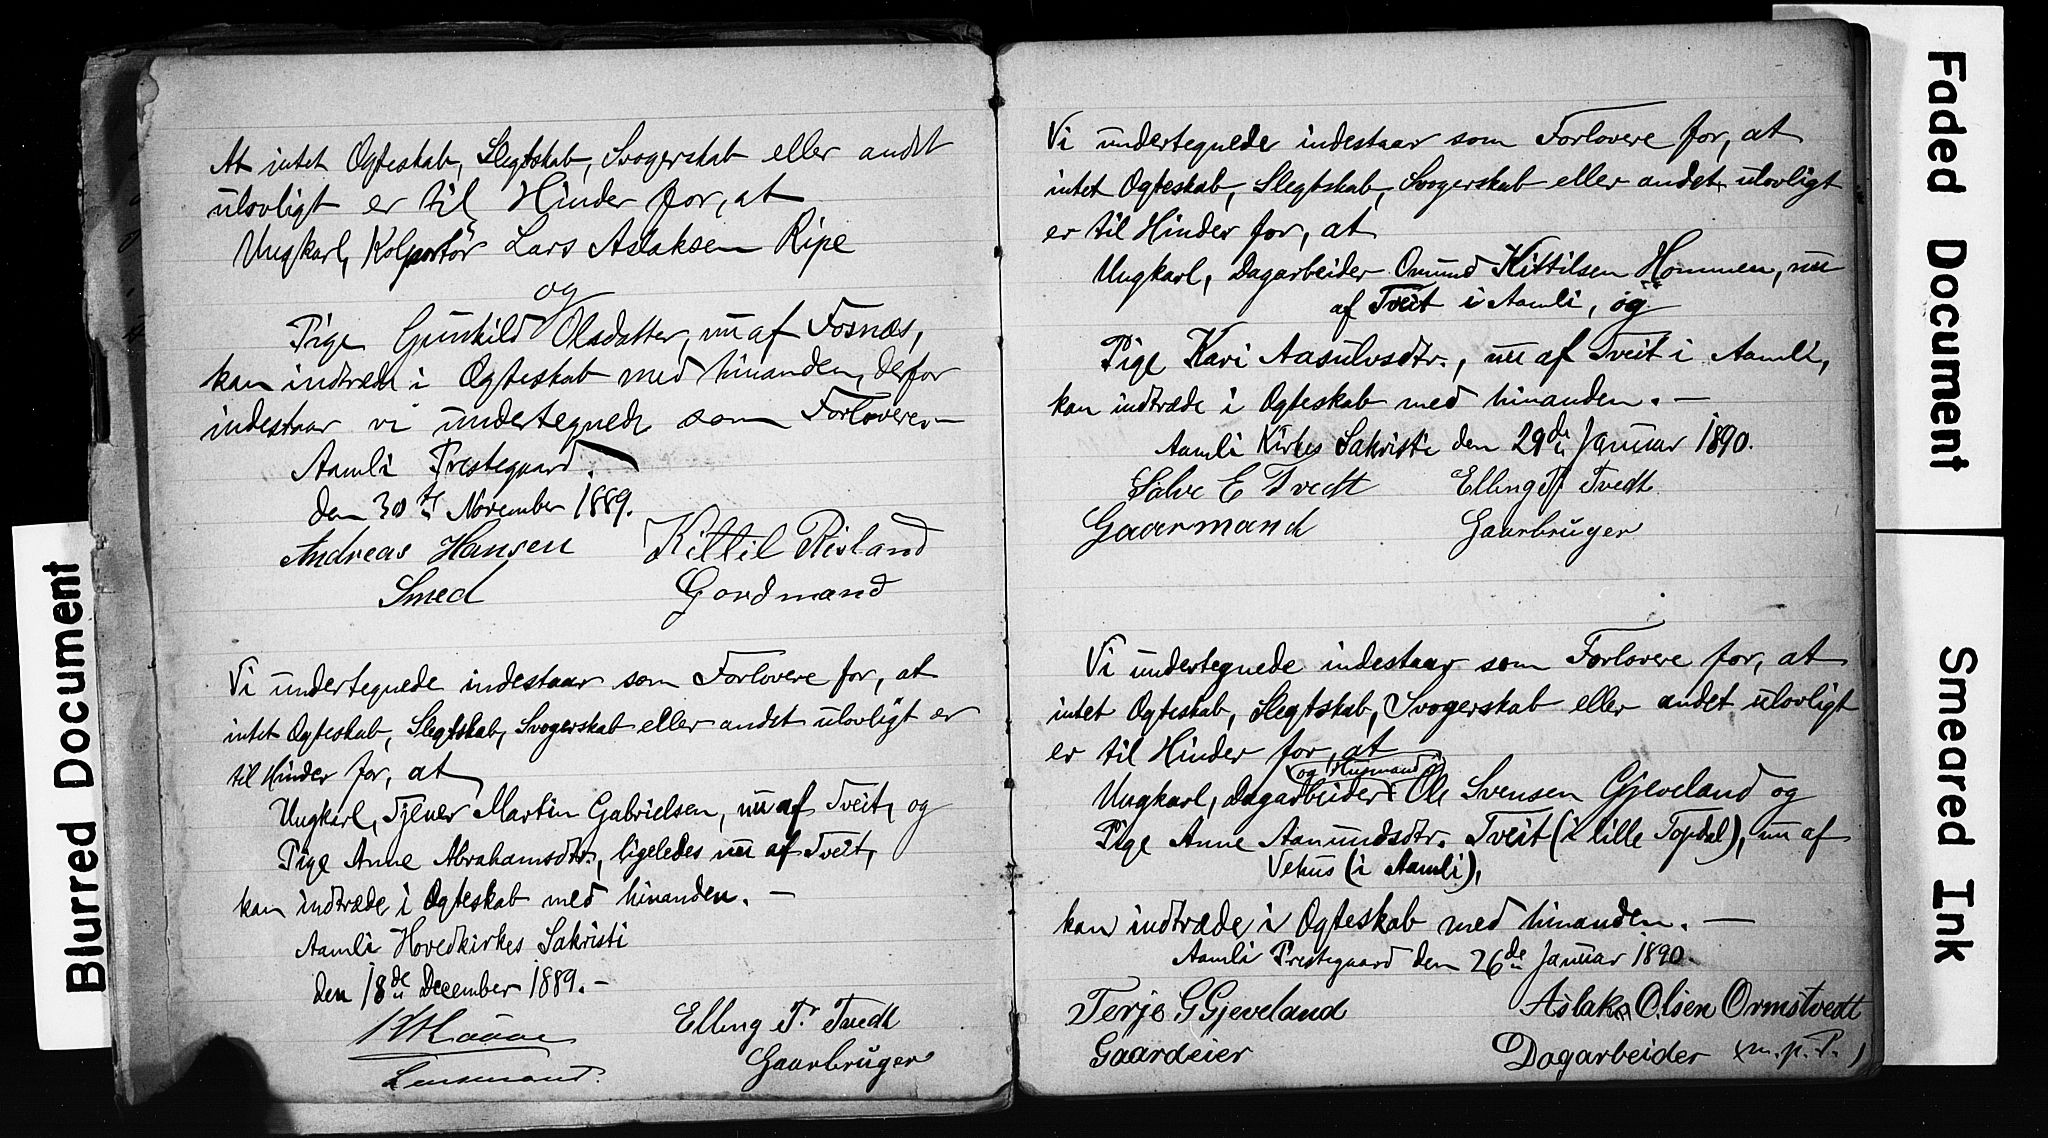 At intet Ægteskab, Slegtskab, Svogerskab eller andet
ulovligt er til Hinder for, at
Ungkarl, Kolportör Lars Aslaksen Ripe
og
Pige Gunhild Olsdatter, nu af Fosnæs,
kan indtræde i Ægteskab med hinanden, derfor
indestaar vi undertegnede som Forlovere.—
Aamli Prestegaard.
den 30te November 1889.
Andreas Hansen Kittil Risland
Smed Gordmand
Vi undertegnede indestaar som Forlovere for, at
intet Ægteskab, Slegtskab, Svogerskab eller andet ulovligt er
til Hinder for, at
Ungkarl, Tjener Martin Gabrielsen, nu af Tveit, og
Pige Anne Abrahamsdtr., ligeledes nu af Tveit,
kan indtræde i Ægteskab med hinanden. —
Aamli Hovedkirkes Sakristi
den 18de December 1889. —
Elling T. Tvedt
Lensmand. Gaarbruger
Vi undertegnede indestaar som Forlovere for, at
intet Ægteskab, Slegtskab, Svogerskab eller andet ulovligt
er til Hinder for, at
Ungkarl, Dagarbeider Omund Kittilsen Hommen, nu
af Tveit i Aamli, og
Pige Kari Aasulvsdtr., nu af Tveit i Aamli,
kan indtræde i Ægteskab med hinanden. —
Aamli Kirkes Sakristi den 29de Januar 1890.
Salve E Tvedt Elling T Tvedt
Gaarmand Gaarbruger
Vi undertegnede indestaar som Forlovere for, at
intet Ægteskab, Slegtskab, Svogerskab eller andet ulovligt
er til Hinder for, at
og Husmand
Ungkarl, Dagarbeider Ole Svensen Gjeveland og
Pige Anne Aamundsdtr. Tveit (i lille Topdal), nu af
Vehus (i Aamli),
kan indtræde i Ægteskab med hinanden. —
Aamli Prestegaard den 26de Januar 1890.
Terje G Gjeveland Aslak Olsen Ormstvedt
Gaardeier Dagarbeider (m. p. P.)
Blurred Document
Faded Document
Smeared Ink